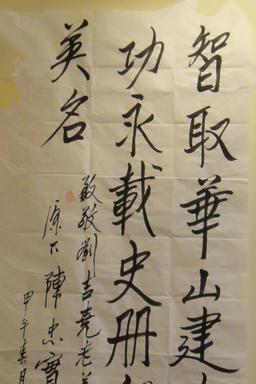 智取華山建
功永載史册
英名
敬劉吉堯老
原下陳忠實
甲午春月